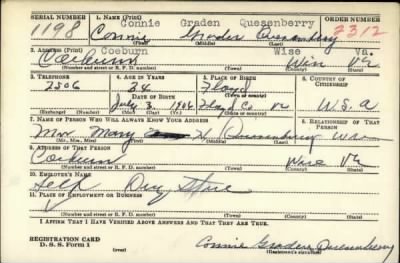 SERIAL NUMBER 1. NAME (Print) ORDER NUMBER
Connie Graden Quesenberry
1198 Connie Graden Quesenberry 2312
(First) (Middle) (Last)
2. ADDRESS (Print) Coeburn Wise Va.
Coeburn Wise Va
(Number and street or R. F. D. number) (Town) (County) (State)
3. TELEPHONE 4. AGE IN YEARS 5. PLACE OF BIRTH 6. COUNTRY OF CITIZENSHIP
2506 34 Floyd
DATE OF BIRTH
July 3, 1906 Floyd Co Va U.S.A
(Exchange) (Number) (Mo.) (Day) (Yr.) (Town or county) (State or country)
7. NAME OF PERSON WHO WILL ALWAYS KNOW YOUR ADDRESS 8. RELATIONSHIP OF THAT PERSON
Mrs. Mary H Quesenberry
(Mr., Mrs., Miss) (First) (Middle) (Last)
9. ADDRESS OF THAT PERSON
Coeburn Wise Va
(Number and street or R. F. D. number) (Town) (County) (State)
10. EMPLOYER'S NAME
Self Drug Store
11. PLACE OF EMPLOYMENT OR BUSINESS
(Number and street or R. F. D. number) (Town) (County) (State)
I AFFIRM THAT I HAVE VERIFIED ABOVE ANSWERS AND THAT THEY ARE TRUE.
REGISTRATION CARD
D. S. S. Form 1
Connie Graden Quesenberry
(Registrant's signature)